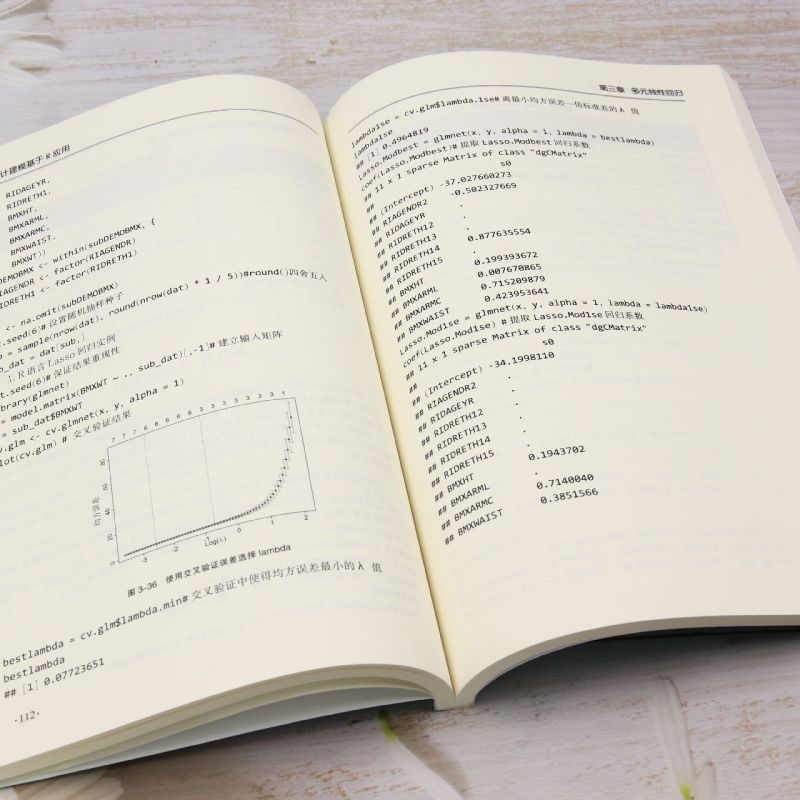 计建模基于 R 应用
RIDAGEYR,
RIDRETH1,
BMXHT,
BMXARML,
BMXARMC,
BMXWAIST,
BMXWT))
DEMOBMX <- within(subDEMOBMX, {
IAGENDR <- factor(RIAGENDR)
IDRETH1 <- factor(RIDRETH1)
<- na.omit(subDEMOBMX)
t.seed(6)# 设置随机抽样种子
= sample(nrow(dat), round(nrow(dat) * 1 / 5))#round()四舍五入
b_dat = dat[sub,]
1. R 语言 Lasso 回归实例
t.seed(6)# 保证结果重现性
brary(glmnet)
= model.matrix(BMXWT ~ .. sub_dat)[,-1]# 建立输入矩阵
= sub_dat$BMXWT
v.glm <- cv.glmnet(x, y, alpha = 1)
lot(cv.glm) # 交叉验证结果
7 7 7 6 6 6 6 3 3 3 3 3 3 3 3 1
均方误差
80
60
40
20
0
-3 -2 -1 0 1 2
Log(λ)
图 3-36 使用交叉验证误差选择 lambda
bestlambda = cv.glm$lambda.min# 交叉验证中使得均方误差最小的 λ 值
bestlambda
## [1] 0.07723651
·112·
第三章 多元线性回归
lambda1se = cv.glm$lambda.1se# 离最小均方误差一倍标准差的 λ 值
lambda1se
## [1] 0.4964819
Lasso.Modbest = glmnet(x, y, alpha = 1, lambda = bestlambda)
coef(Lasso.Modbest)# 提取 Lasso.Modbest 回归系数
## 11 x 1 sparse Matrix of class "dgCMatrix"
## s0
## (Intercept) -37.027660273
## RIAGENDR2 -0.502327669
## RIDAGEYR .
## RIDRETH12 .
## RIDRETH13 .
## RIDRETH14 0.877635554
## RIDRETH15 .
## BMXHT 0.199393672
## BMXARML 0.007670865
## BMXARMC 0.715209879
## BMXWAIST 0.423953641
Lasso.Mod1se = glmnet(x, y, alpha = 1, lambda = lambda1se)
coef(Lasso.Mod1se) # 提取 Lasso.Mod1se 回归系数
## 11 x 1 sparse Matrix of class "dgCMatrix"
## s0
## (Intercept) -34.1998110
## RIAGENDR2 .
## RIDAGEYR .
## RIDRETH12 .
## RIDRETH13 .
## RIDRETH14 .
## RIDRETH15 .
## BMXHT 0.1943702
## BMXARML .
## BMXARMC 0.7140040
## BMXWAIST 0.3851566